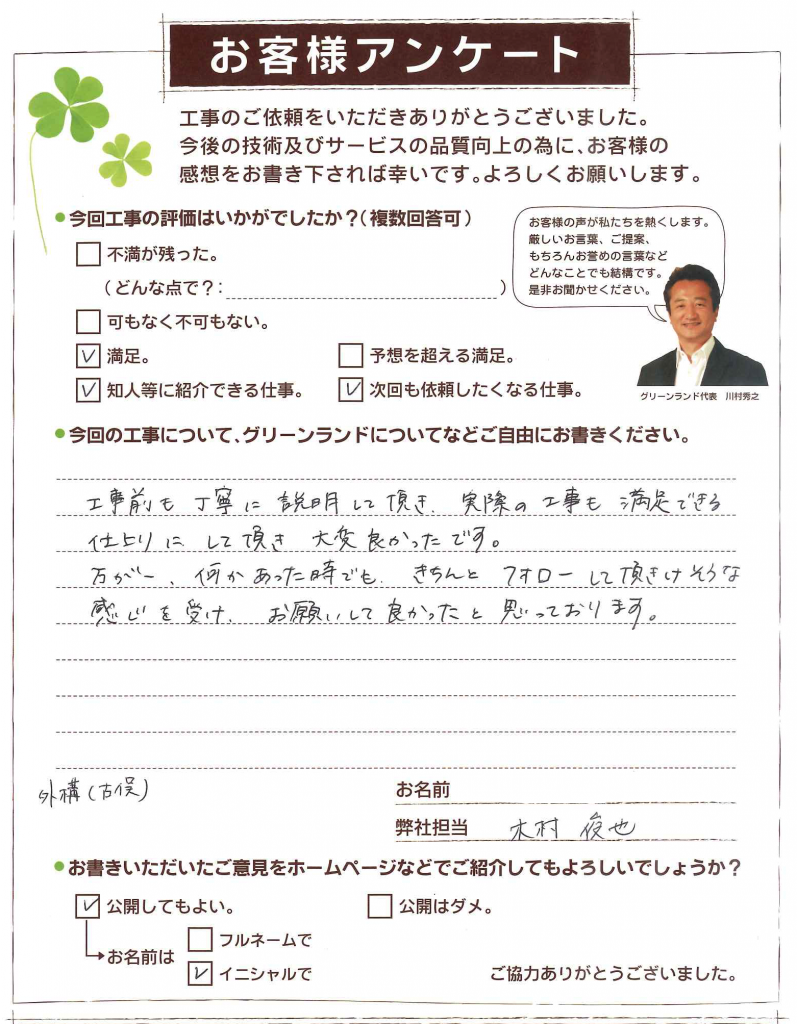 お客様アンケート
工事のご依頼をいただきありがとうございました。
今後の技術及びサービスの品質向上の為に、お客様の
感想をお書き下されば幸いです。よろしくお願いします。
●今回工事の評価はいかがでしたか?(複数回答可)
お客様の声が私たちを熱くします。
厳しいお言葉、ご提案、
もちろんお誉めの言葉など
どんなことでも結構です。
是非お聞かせください。
グリーンランド代表 川村秀之
不満が残った。
(どんな点で?: )
可もなく不可もない。
満足。 予想を超える満足。
知人等に紹介できる仕事。 次回も依頼したくなる仕事。
●今回の工事について、グリーンランドについてなどご自由にお書きください。
工事前も丁寧に説明して頂き、実際の工事も満足できる
仕上りにして頂き大変良かったです。
万が一、何かあった時でも、きちんとフォローして頂きけそうな
感じを受け、お願いして良かったと思っております。
外構(古俣)
お名前
弊社担当 木村 俊也
●お書きいただいたご意見をホームページなどでご紹介してもよろしいでしょうか?
公開してもよい。 公開はダメ。
お名前は
フルネームで
イニシャルで
ご協力ありがとうございました。